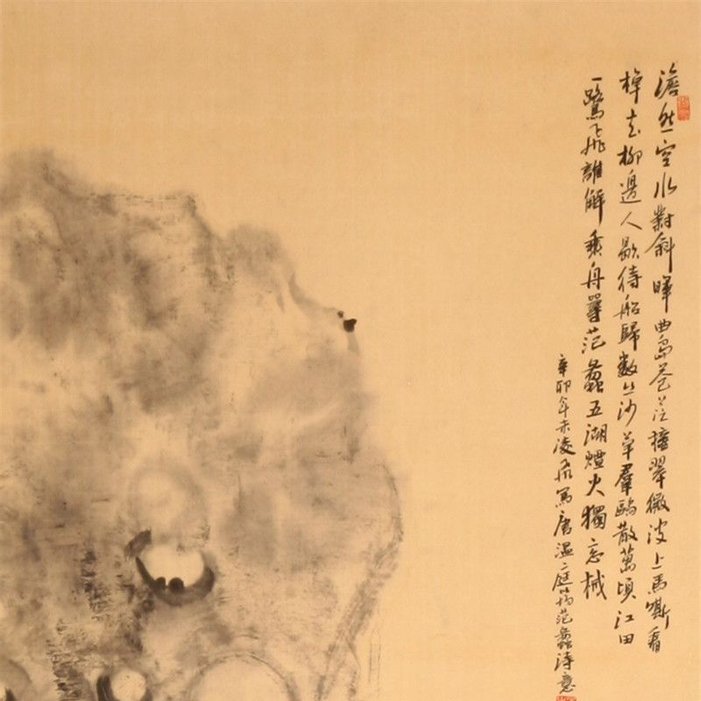 澹然空水對斜暉曲島蒼茫接翠微波上馬嘶看
棹去柳邊人歇待船歸數丛沙草羣鷗散萬頃江田
一鷺飛誰解乘舟尋范蠡五湖煙火獨忘械
辛卯年末凌飛寫唐溫庭筠范蠡詩意